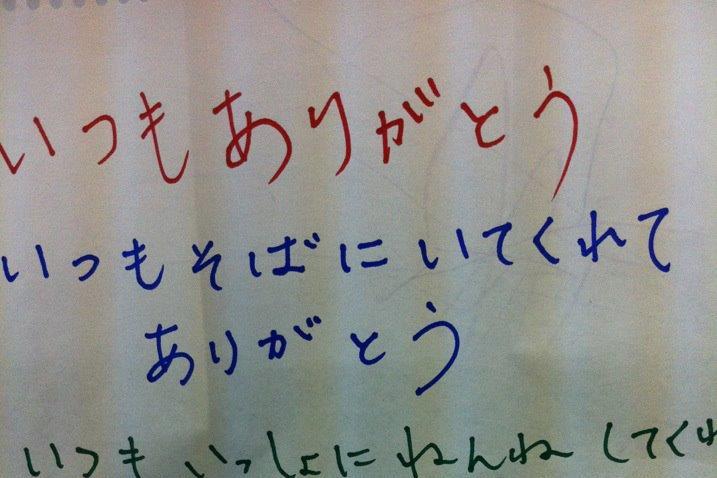 いつもありがとう
いつもそばにいてくれて
ありがとう
いつもいっしょにねんねしてくれ